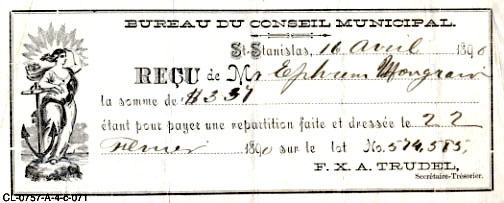 BUREAU DU CONSEIL MUNICIPAL.
St-Stanislas, 16 avril 1890
REÇU de Mr Ephrem Mongrain
la somme de $3.37
étant pour payer une repartition faite et dressée le 22
février 1890 sur le lot No. 574,585,
F. X. A. TRUDEL,
Secrétaire-Trésorier.
CL-0757-A-4-c-071